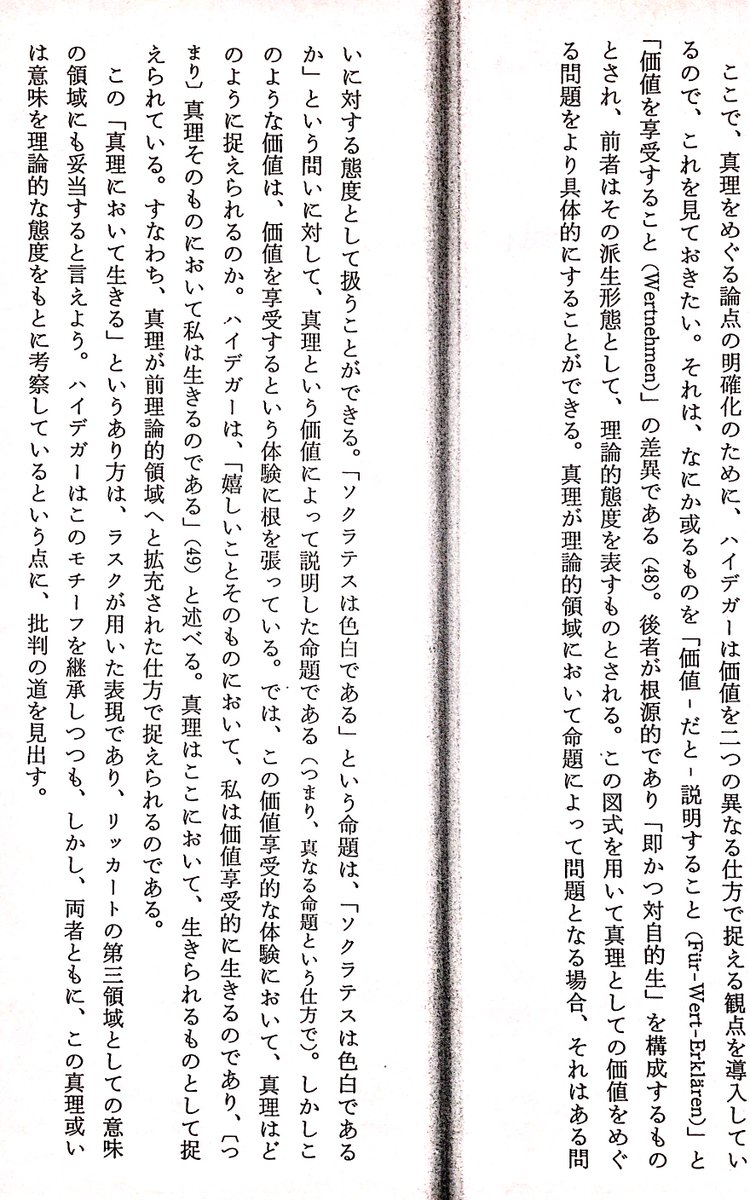 ここで、真理をめぐる論点の明確化のために、ハイデガーは価値を二つの異なる仕方で捉える観点を導入してい
るので、これを見ておきたい。それは、なにか或るものを「価値-だと-説明すること（Für-Wert-Erklären）」と
「価値を享受すること（Wertnehmen）」の差異である（48）。後者が根源的であり「即かつ対自的生」を構成するもの
とされ、前者はその派生形態として、理論的態度を表すものとされる。この図式を用いて真理としての価値をめぐ
る問題をより具体的にすることができる。真理が理論的領域において命題によって問題となる場合、それはある問
いに対する態度として扱うことができる。「ソクラテスは色白である」という命題は、「ソクラテスは色白である
か」という問いに対して、真理という価値によって説明した命題である（つまり、真なる命題という仕方で）。しかしこ
のような価値は、価値を享受するという体験に根を張っている。では、この価値享受的な体験において、真理はど
のように捉えられるのか。ハイデガーは、「嬉しいことそのものにおいて、私は価値享受的に生きるのであり、〔つ
まり〕真理そのものにおいて私は生きるのである」（49）と述べる。真理はここにおいて、生きられるものとして捉
えられている。すなわち、真理が前理論的領域へと拡充された仕方で捉えられるのである。
この「真理において生きる」というあり方は、ラスクが用いた表現であり、リッカートの第三領域としての意味
の領域にも妥当すると言えよう。ハイデガーはこのモチーフを継承しつつも、しかし、両者ともに、この真理或い
は意味を理論的な態度をもとに考察しているという点に、批判の道を見出す。